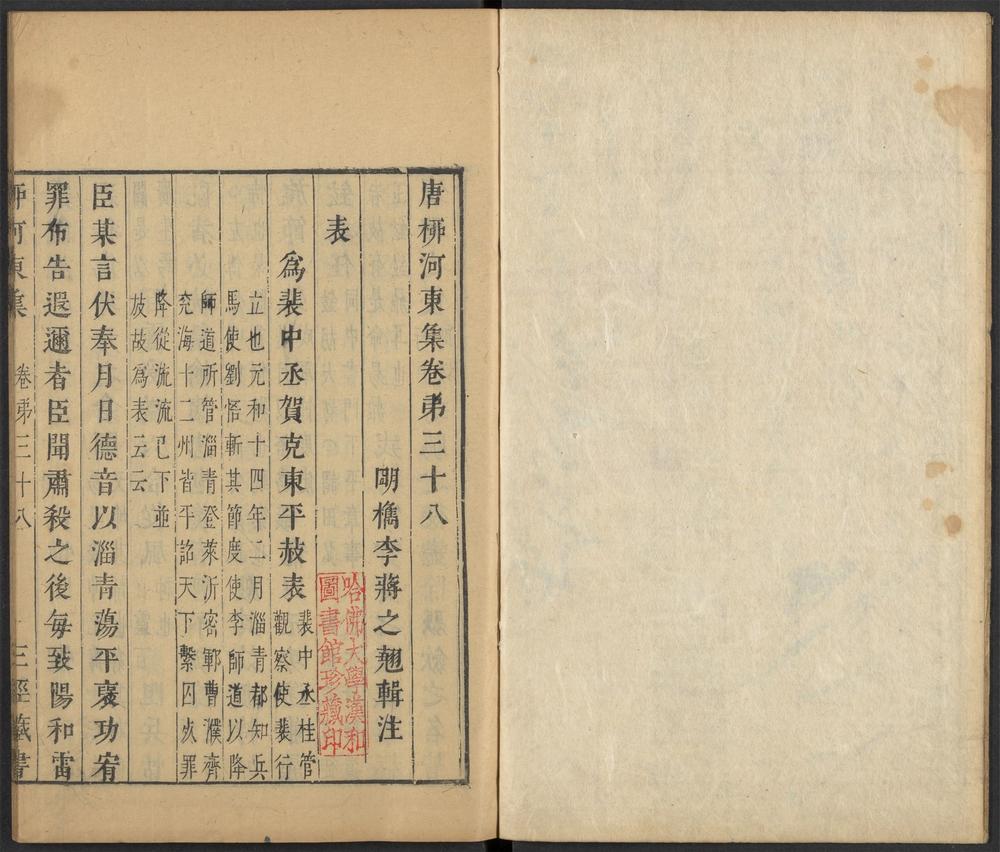 唐桺河東集卷弟三十八
朙檇李蔣之翹輯注
表
爲裴中丞賀克東平赦表
裴中丞桂管
觀察使裴行
立也元和十四年二月淄青都知兵
馬使劉悟斬其節度使李師道以降
師道所管淄青登萊沂密鄆曹濮齊
兖海十二州皆平詔天下繫囚死罪
降從流流已下並
放故爲表云云
臣某言伏奉月日德音以淄青蕩平褒功宥
罪布告遐邇者臣聞肅殺之後每致陽和雷
桺河東集 卷弟三十八 三徑藏書
哈佛大學漢和
圖書館珍藏印